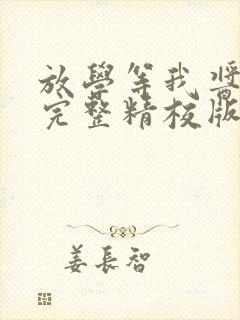 放學等我醬
完整精校版
姜長智